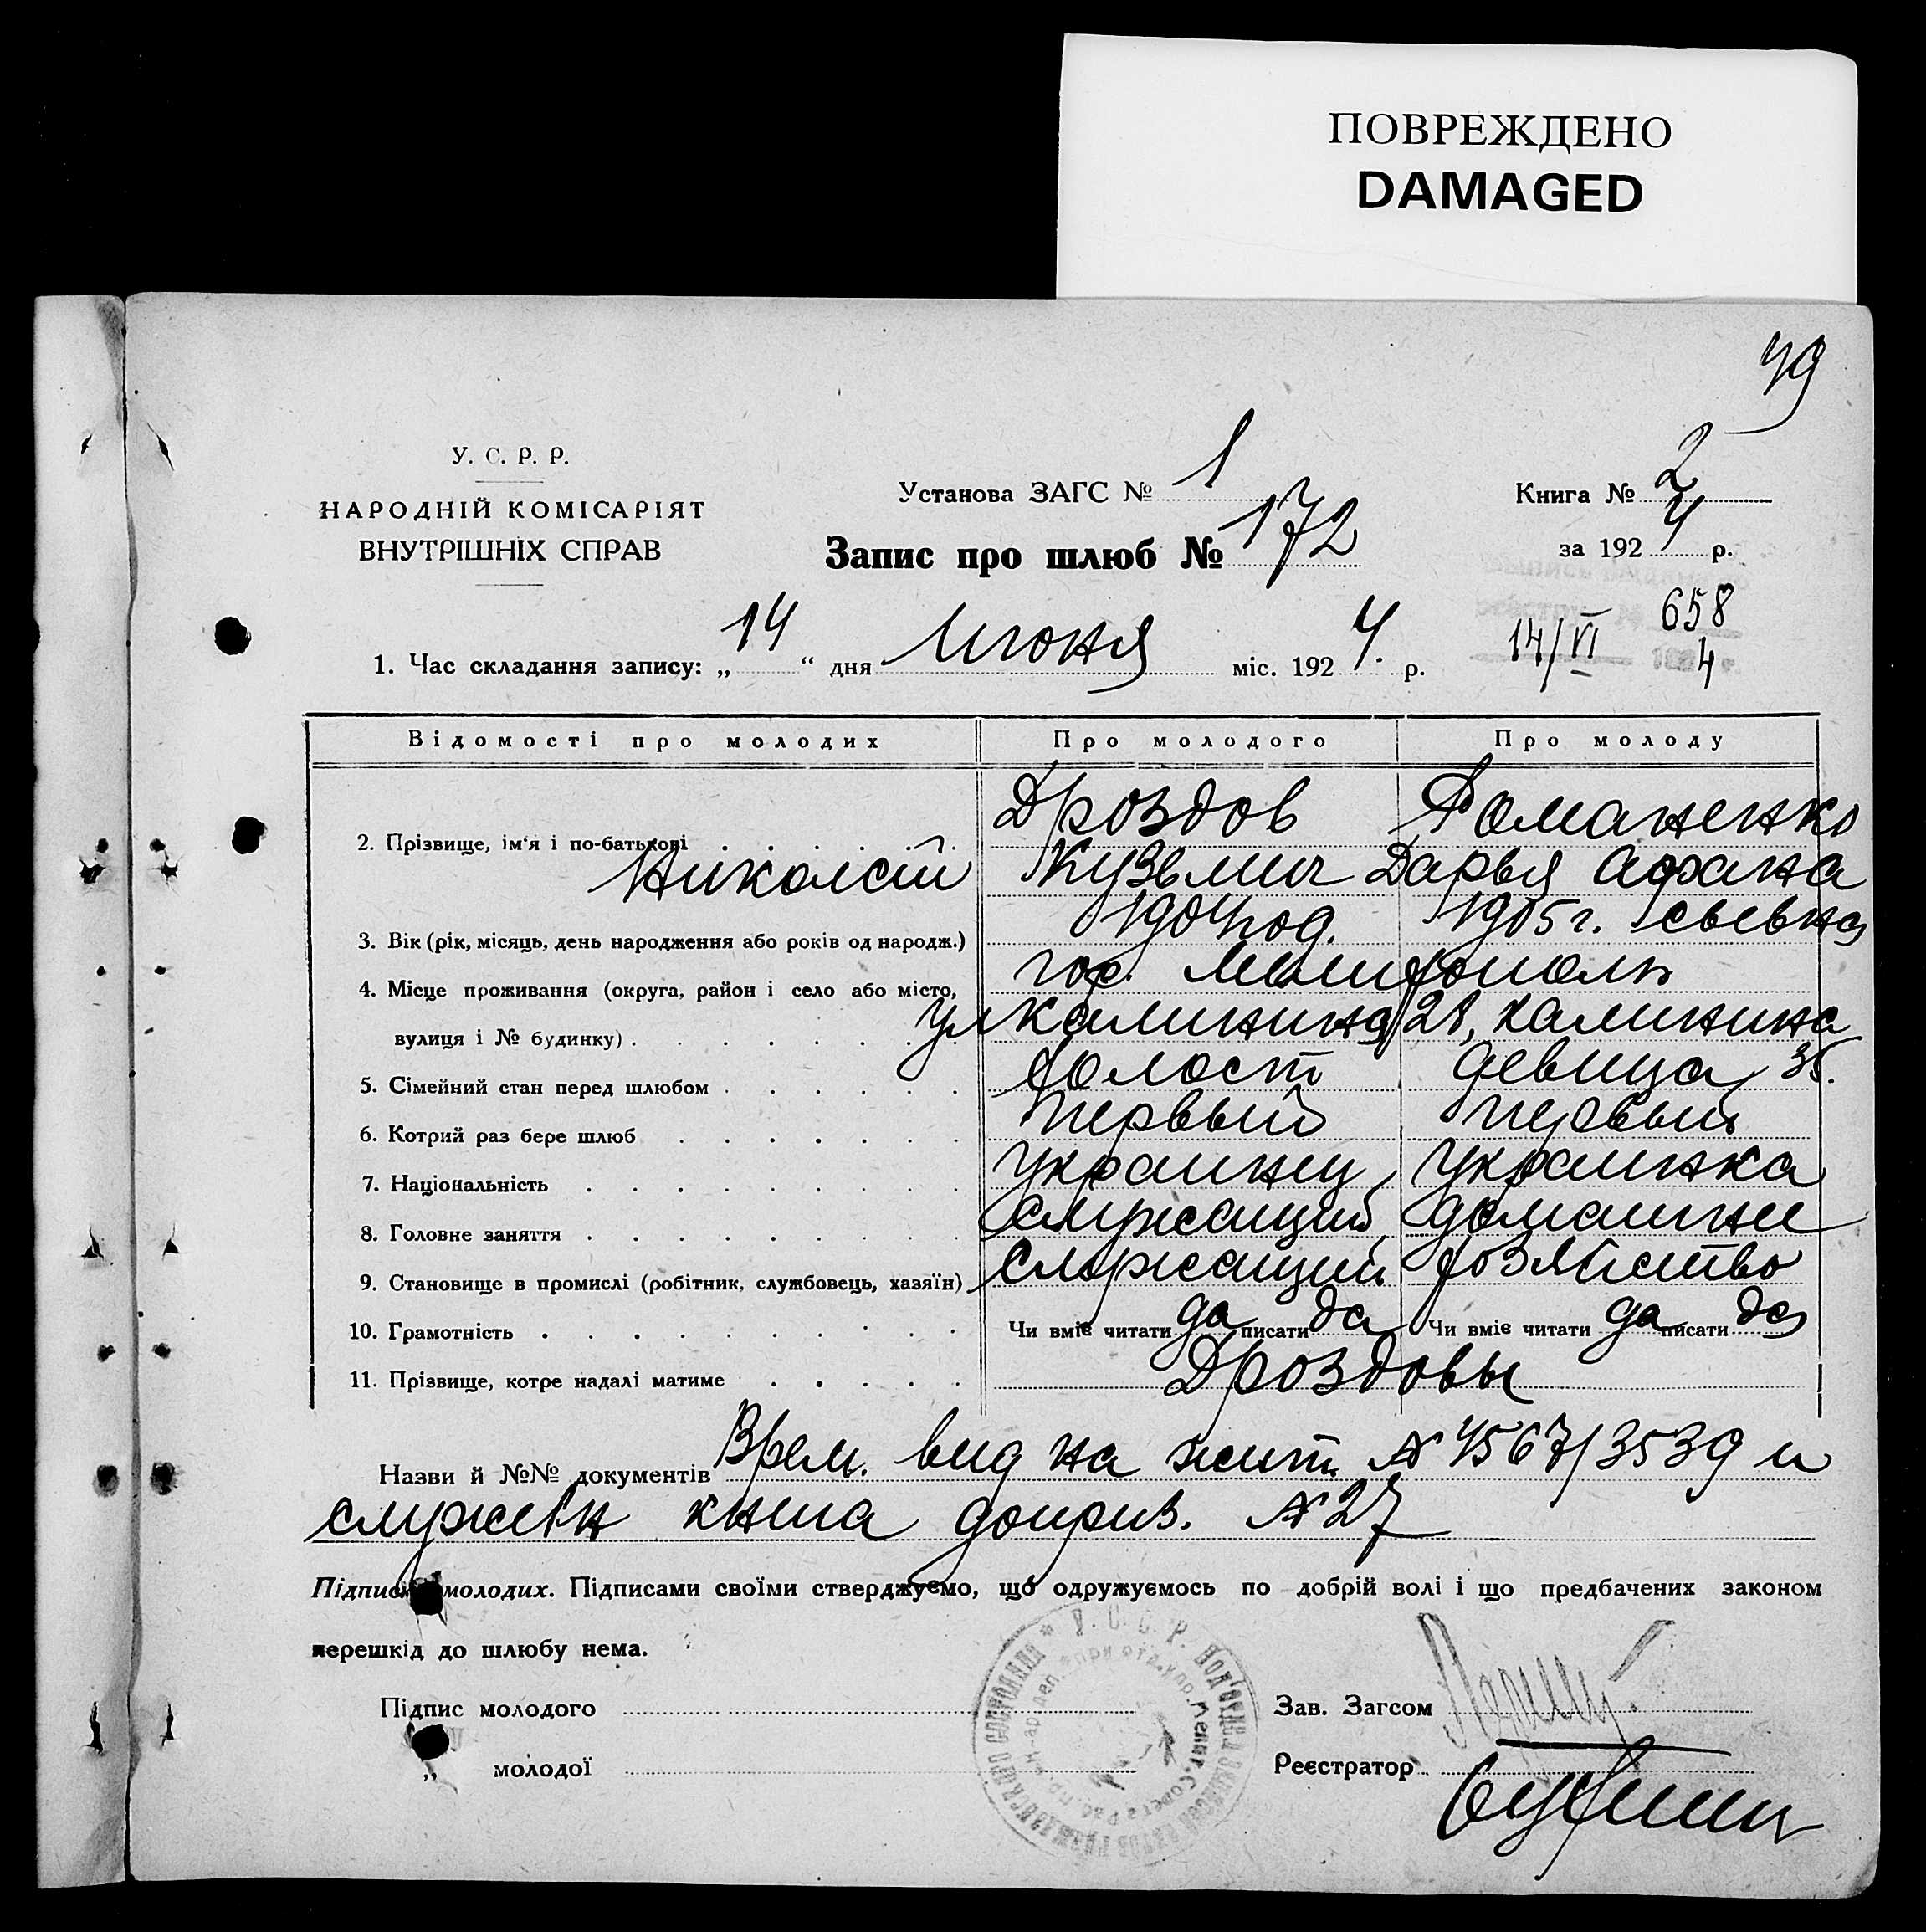 ПОВРЕЖДЕНО
DAMAGED
49
У. С. Р. Р.
НАРОДНІЙ КОМІСАРІЯТ
ВНУТРІШНІХ СПРАВ
Установа ЗАГС № 1
Книга № 2
за 1924 р.
Запис про шлюб № 172
658
14/VI 4
1. Час складання запису: „14“ дня Июня міс. 1924. р.
Відомості про молодих Про молодого Про молоду
Дроздов Романенко
2. Прізвище, ім'я і по-батькові
Николай Кузьмич Дарья Афана
сьевна
3. Вік (рік, місяць, день народження або років од народж.) 1904 год. 1905 г.
4. Місце проживання (округа, район і село або місто, гор. Мелитополь
вулиця і № будинку) ул Калинина 28, Калинина 35.
5. Сімейний стан перед шлюбом холост девица
6. Котрий раз бере шлюб первый первый
7. Національність украинец украинка
8. Головне заняття служащий домашнее
9. Становище в промислі (робітник, службовець, хазяїн) служащий хозяйство
10. Грамотність Чи вміє читати да писати да Чи вміє читати да писати да
11. Прізвище, котре надалі матиме Дроздовы
Назви й №№ документів Врем. вид на жит. № 4567/3539 и
служебн книга доприз. № 27
Підписи молодих. Підписами своїми стверджуємо, що одружуємось по добрій волі і що предбачених законом
перешкід до шлюбу нема.
Підпис молодого
Зав. Загсом
„ молодої
Реєстратор